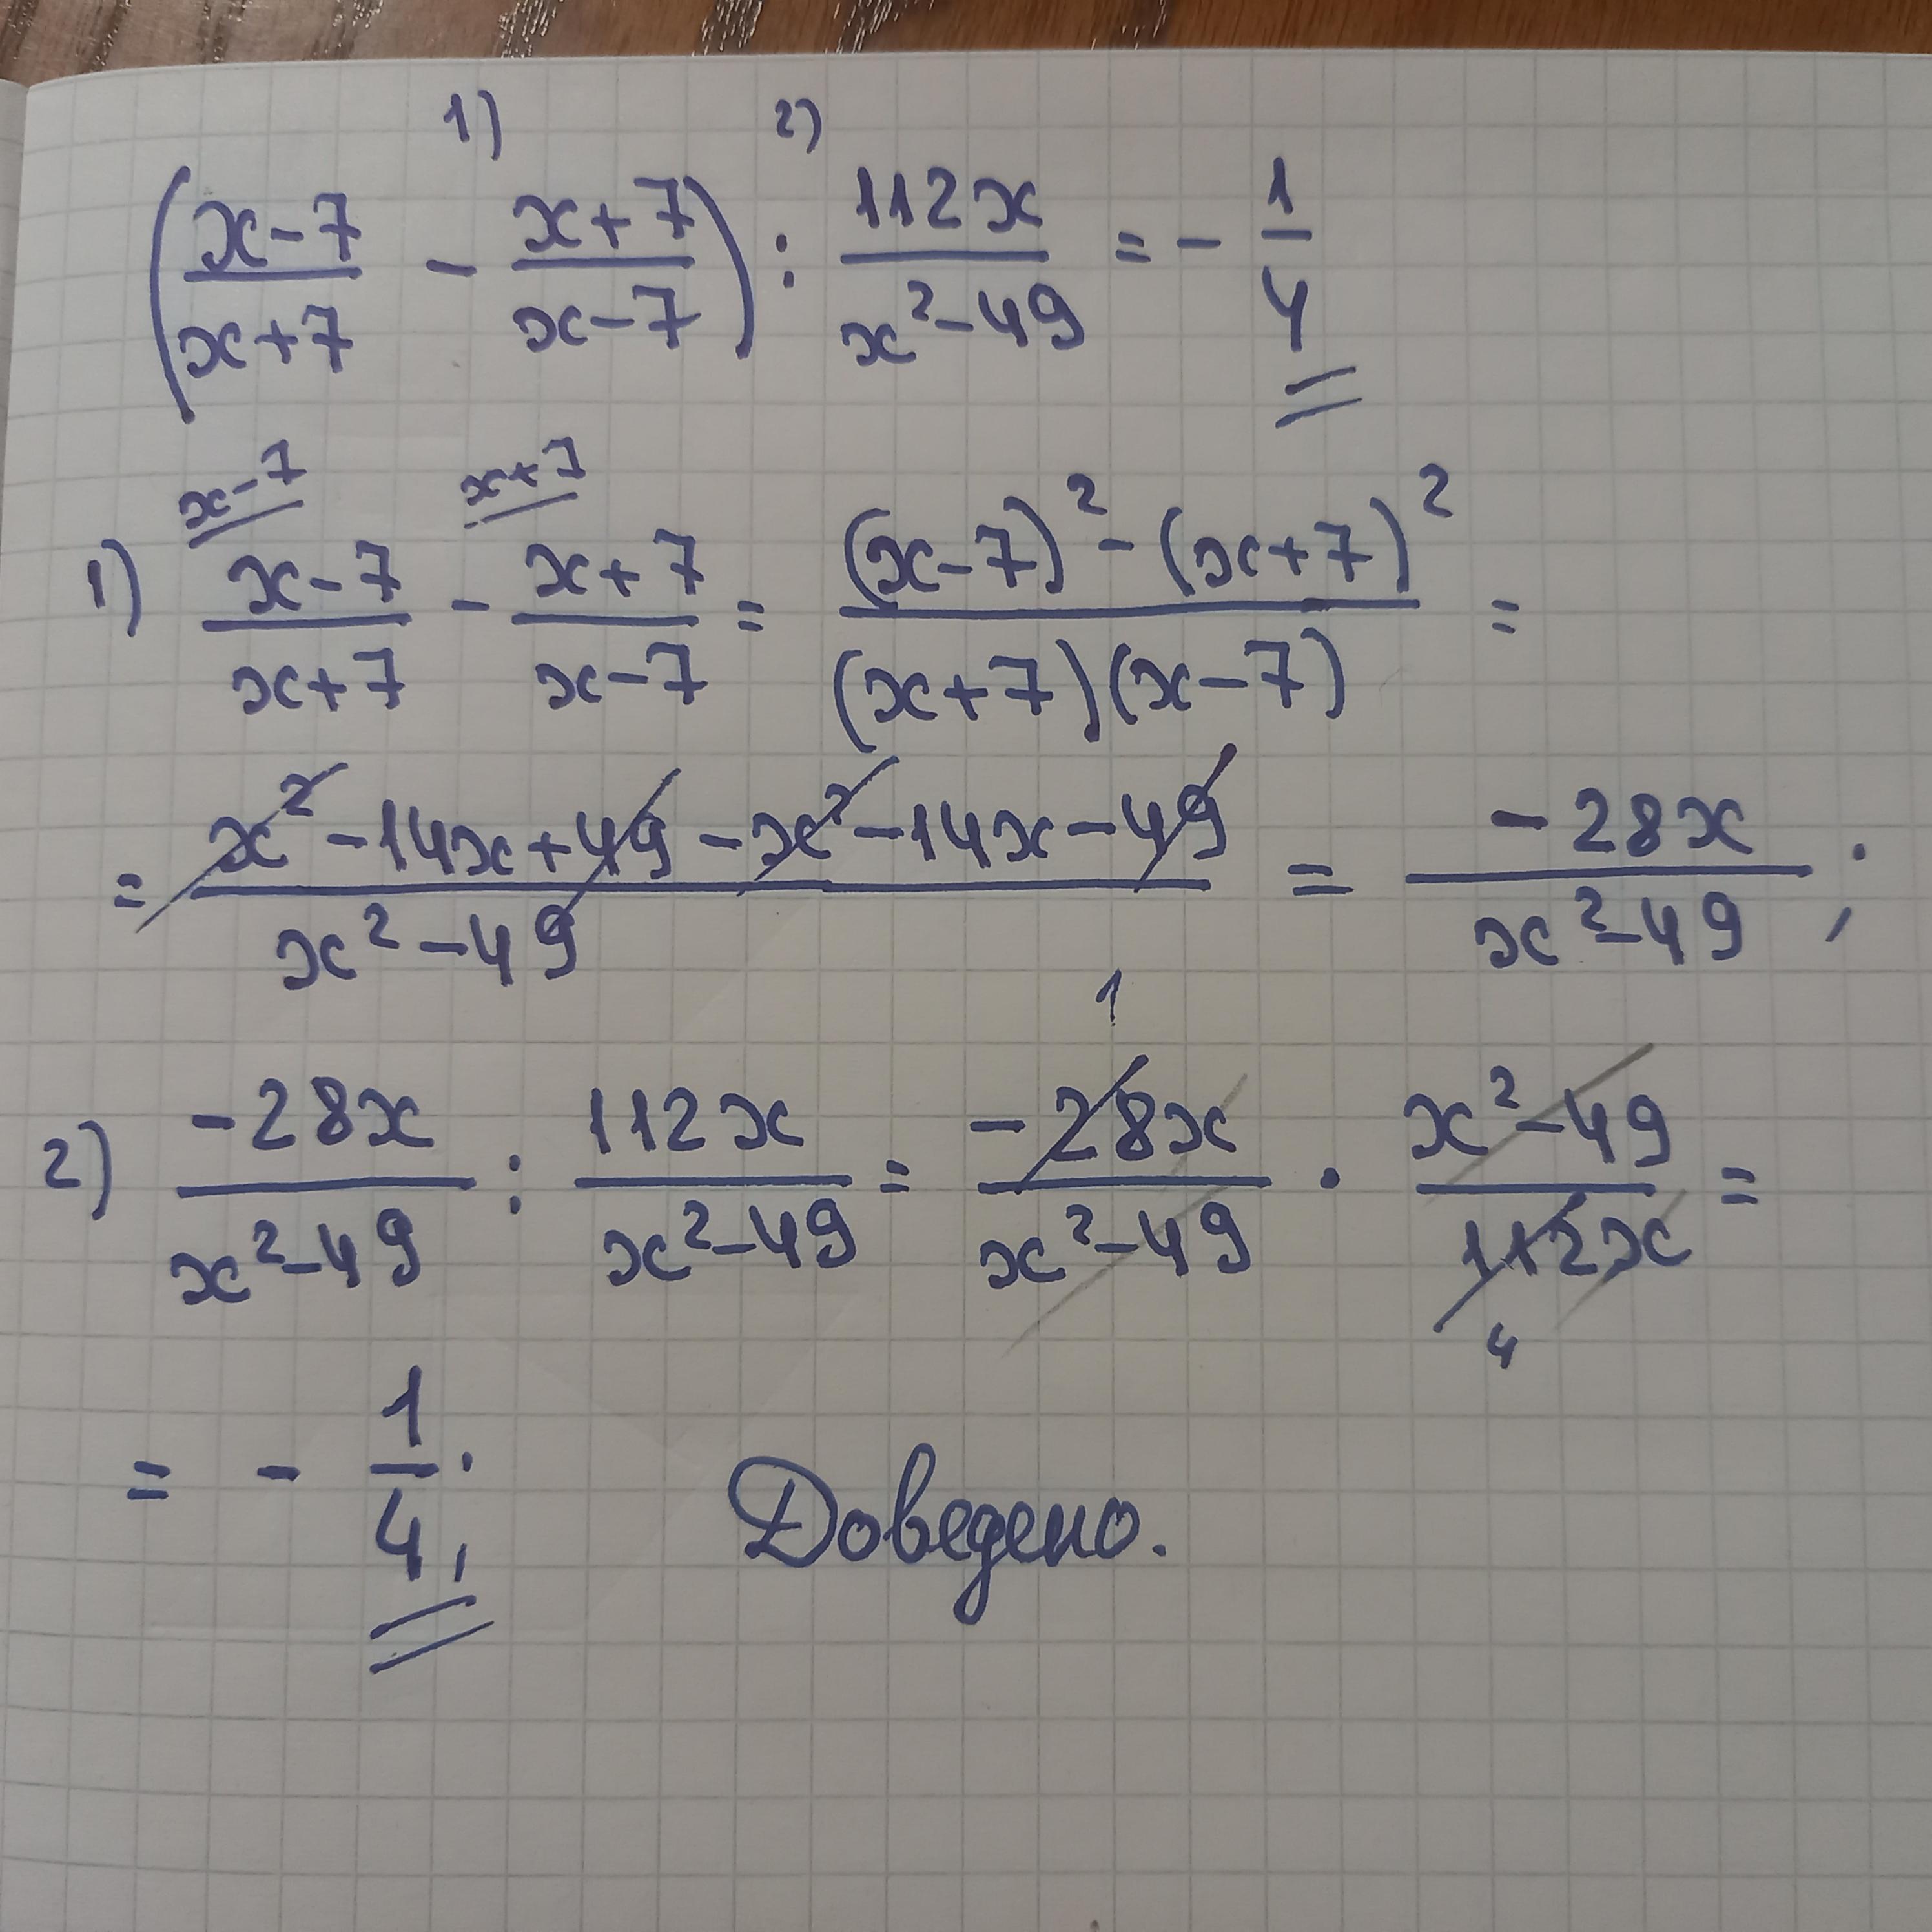 1) 2)
(x-7/x+7 - x+7/x-7) : 112x/x²-49 = - 1/4
x-7 x+7
1) x-7/x+7 - x+7/x-7 = (x-7)² - (x+7)²/(x+7)(x-7) =
= x² - 14x + 49 - x² - 14x - 49/x² - 49 = -28x/x²-49 ;
1
2) -28x/x²-49 : 112x/x²-49 = -28x/x²-49 · x²-49/112x =
4
= - 1/4 ;
Доведено.